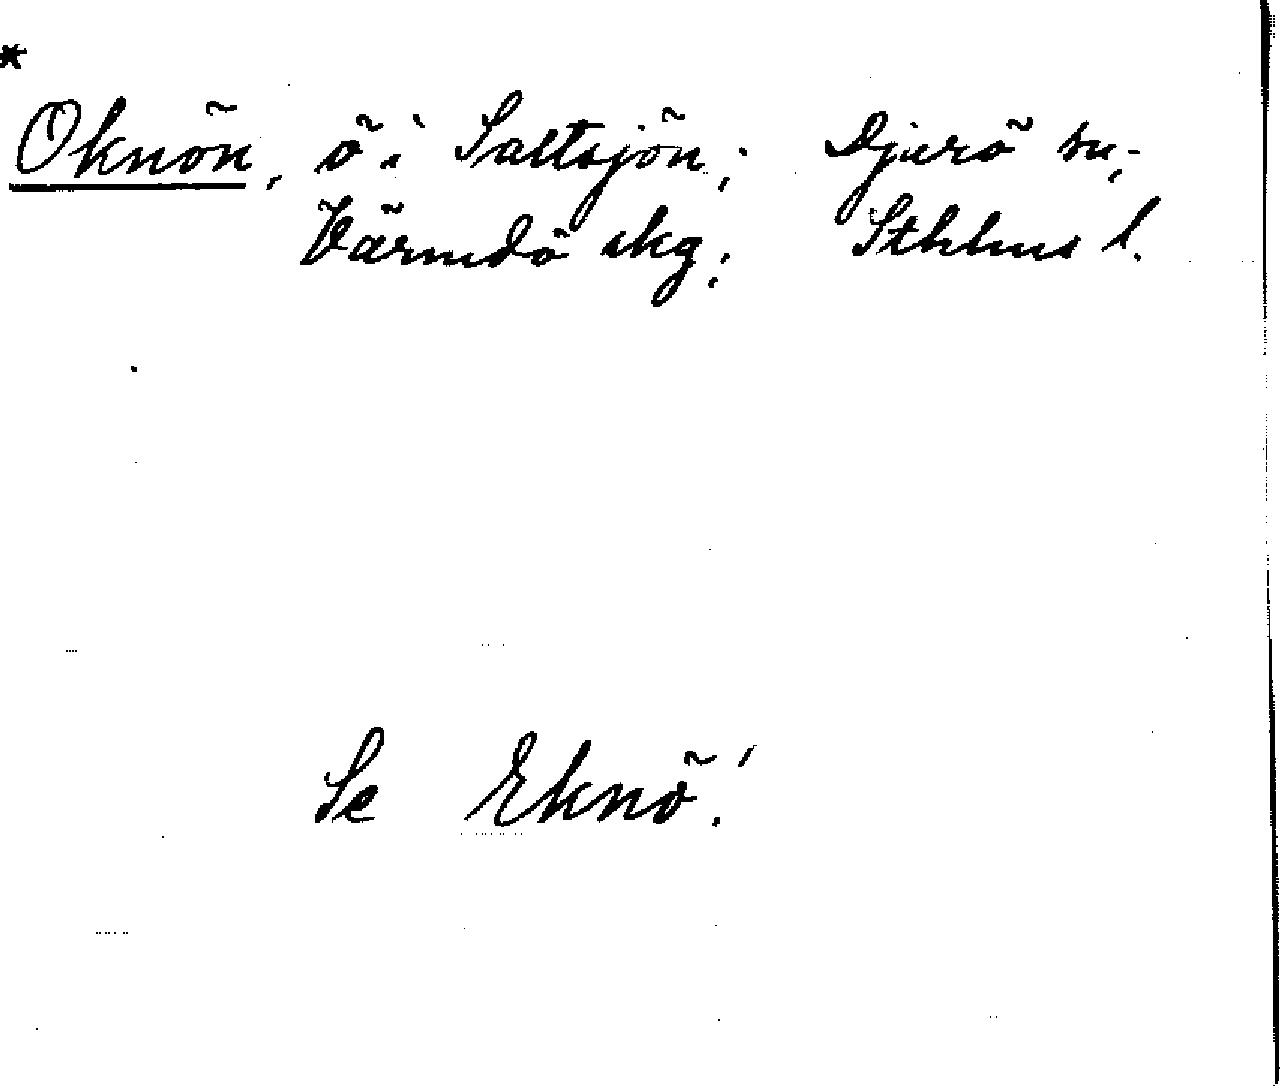 *
Oknön, ö i Saltsjön; Djurö sn;
Värmdö skg; Sthlms l.
Se Eknö!